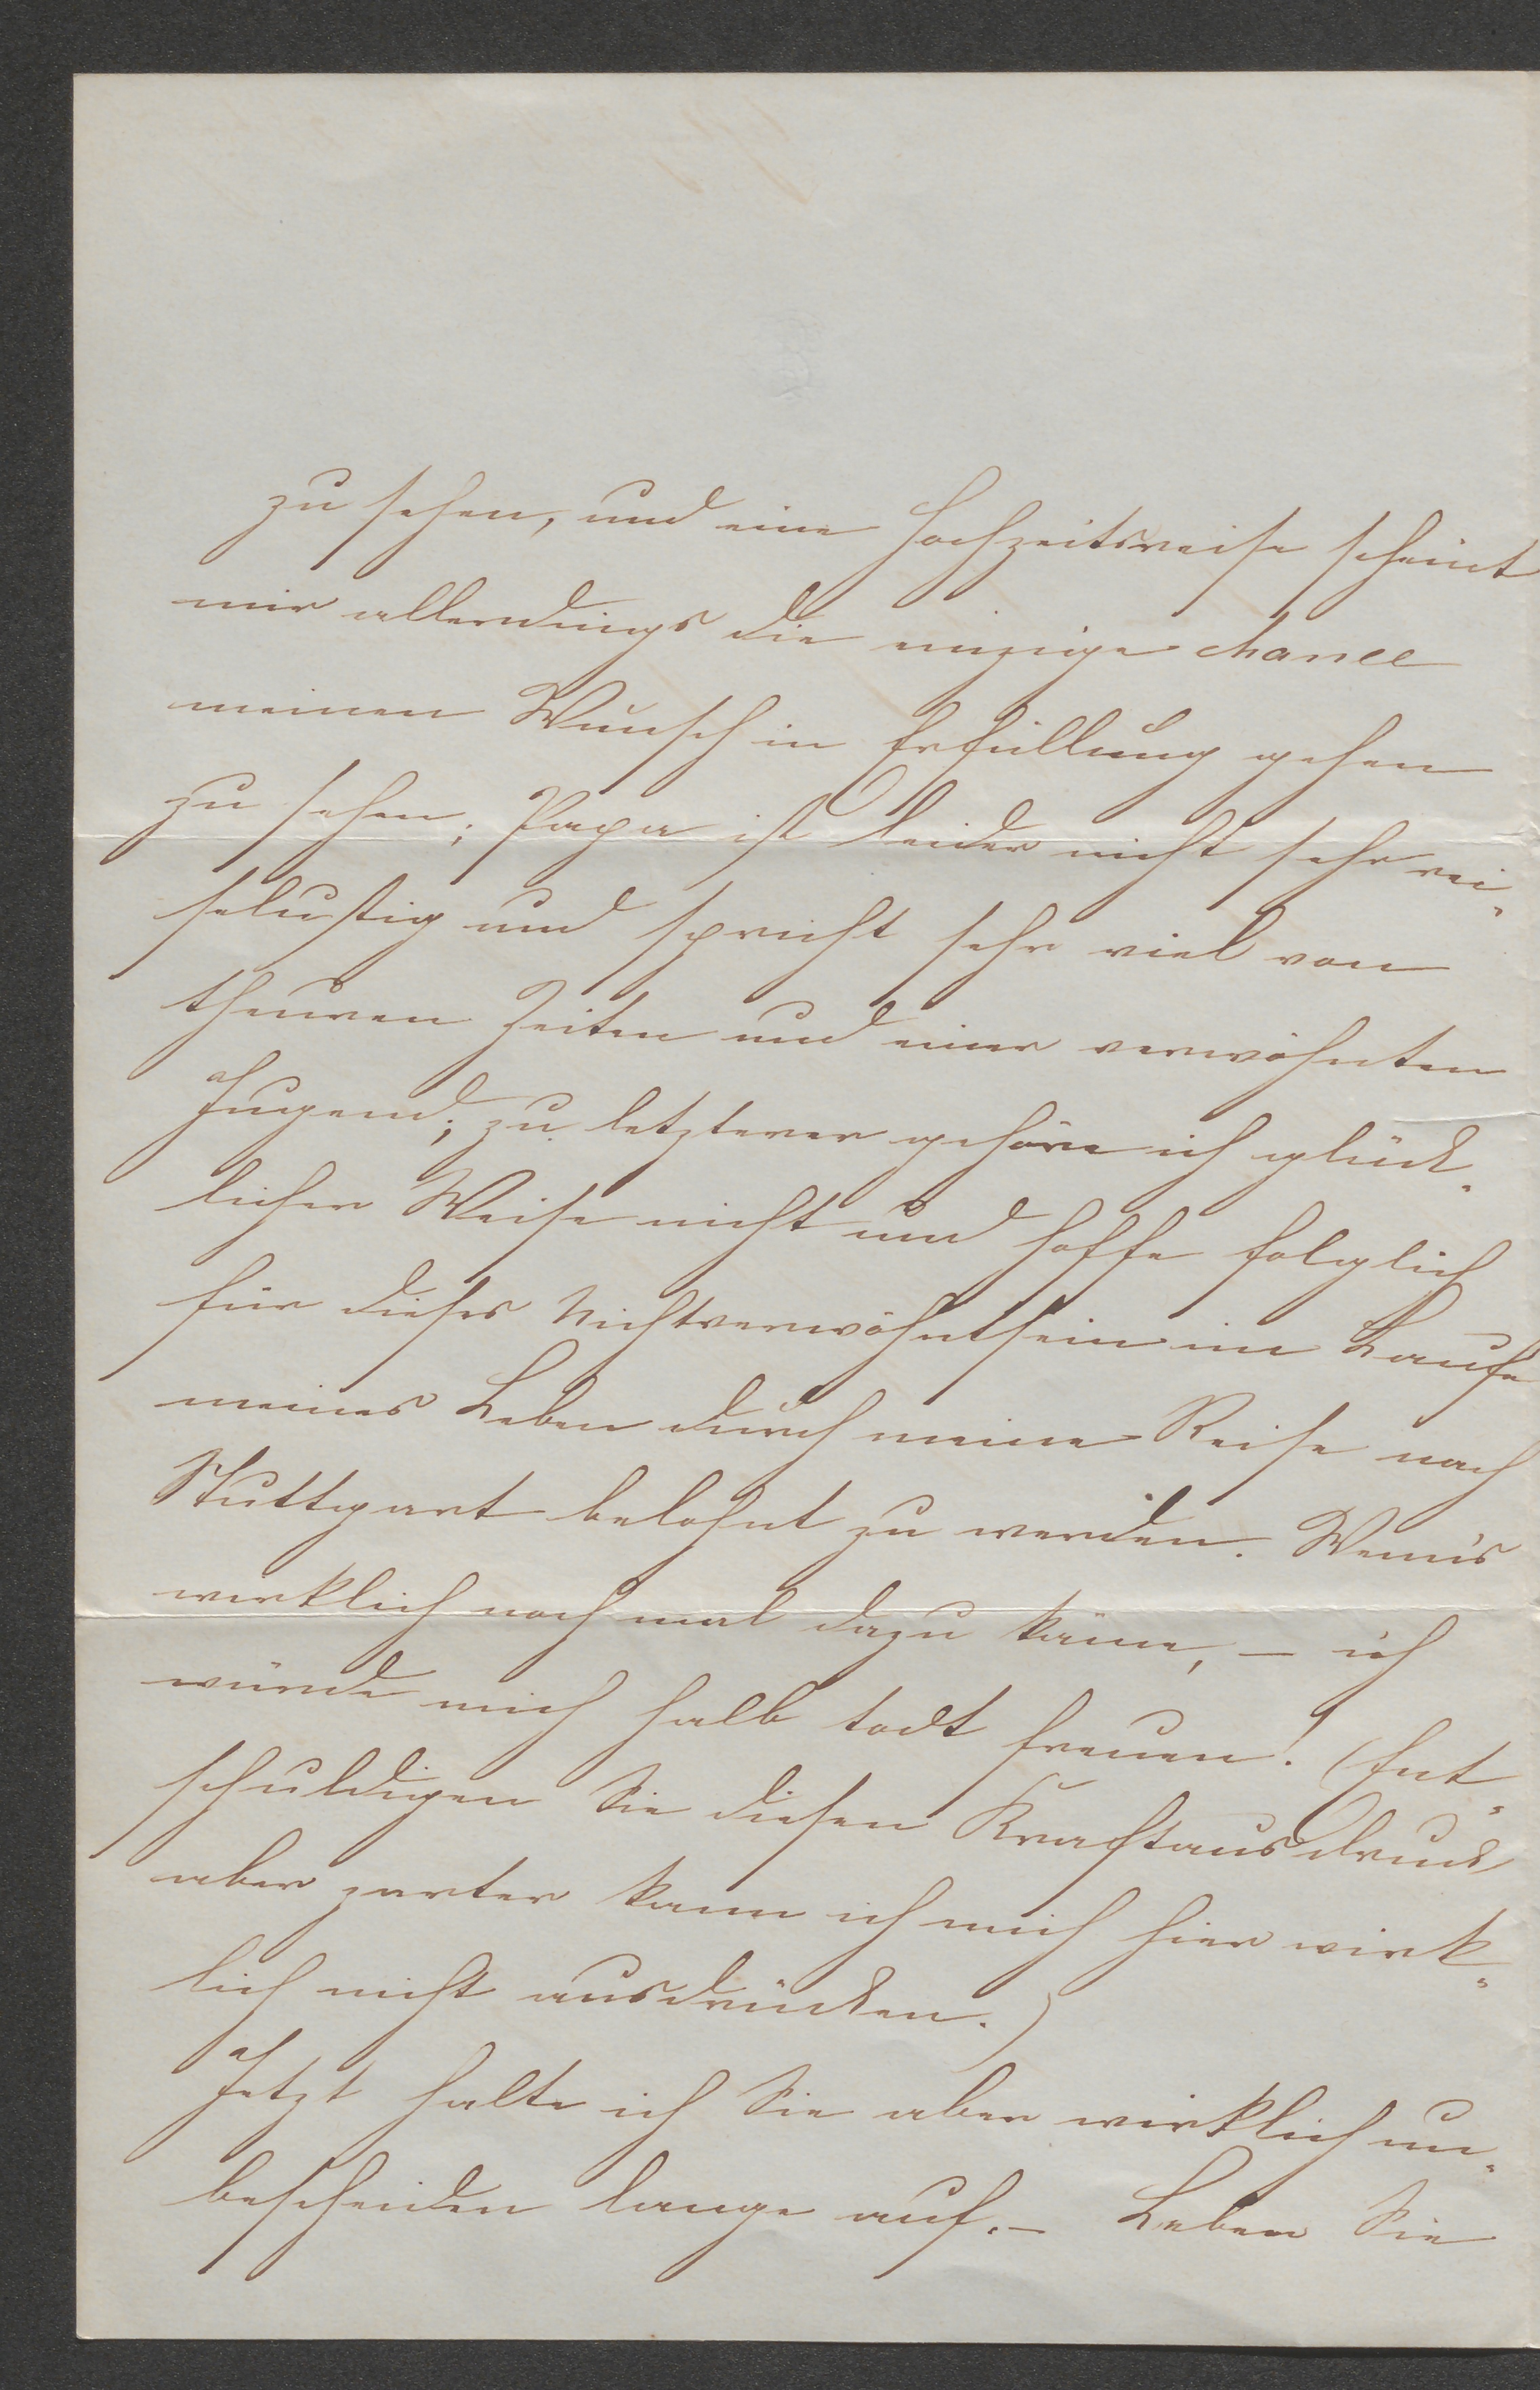 zu sehen, und eine Hochzeitsreise scheint
mir allerdings die einzige chance
meinen Wunsch in Erfüllung gehen
zu sehen; Papa ist leider nicht sehr rei-
selustig und spricht sehr viel von
theuren Zeiten und einer verwöhnten
Jugend; zu letzterer gehöre ich glück-
licher Weise nicht und hoffe folglich
für dieses Nichtverwöhntsein im Laufe
meines Leben durch meine Reise nach
Stuttgart belohnt zu werden. Wenn's
wirklich noch mal dazu käme, – ich
würde mich halb todt freuen! (Ent-
schuldigen Sie diesen Kraftausdruck
aber zarter kann ich mich hier wirk-
lich nicht ausdrücken.)
Jetzt halte ich Sie aber wirklich un-
bescheiden lange auf. – Leben Sie